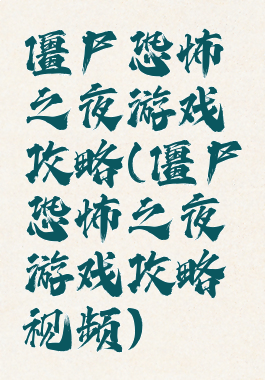 僵尸恐怖
之夜游戏
攻略(僵尸
恐怖之夜
游戏攻略
视频)